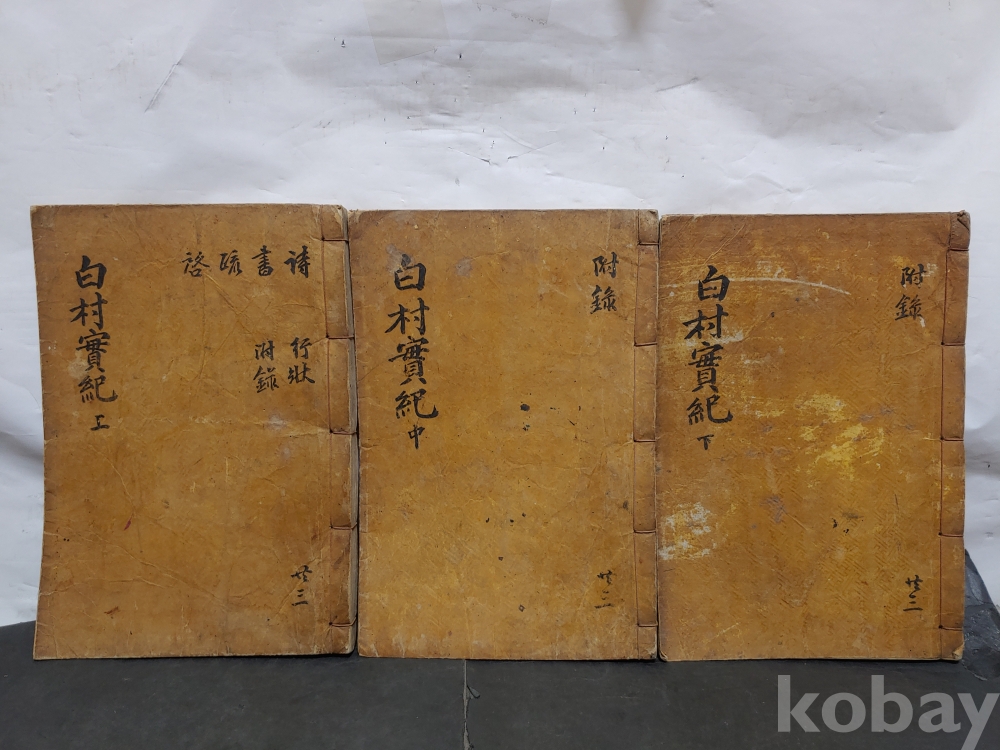 白村實紀 上
詩
書
疏
啓
行狀
附錄
共三
白村實紀 中
附錄
共三
白村實紀 下
附錄
共三
kobay